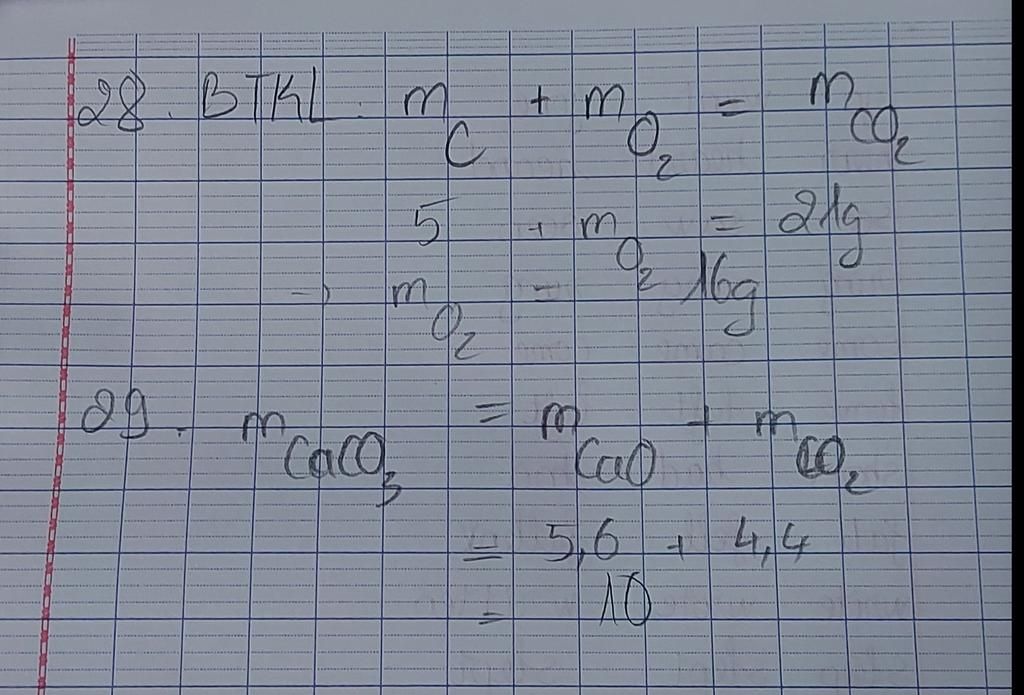 28. BTKL. m_C + m_O₂ = m_CO₂
5 + m_O₂ = 21g
→ m_O₂ = 16g
29. m_CaCO₃ = m_CaO + m_CO₂
= 5,6 + 4,4
= 10